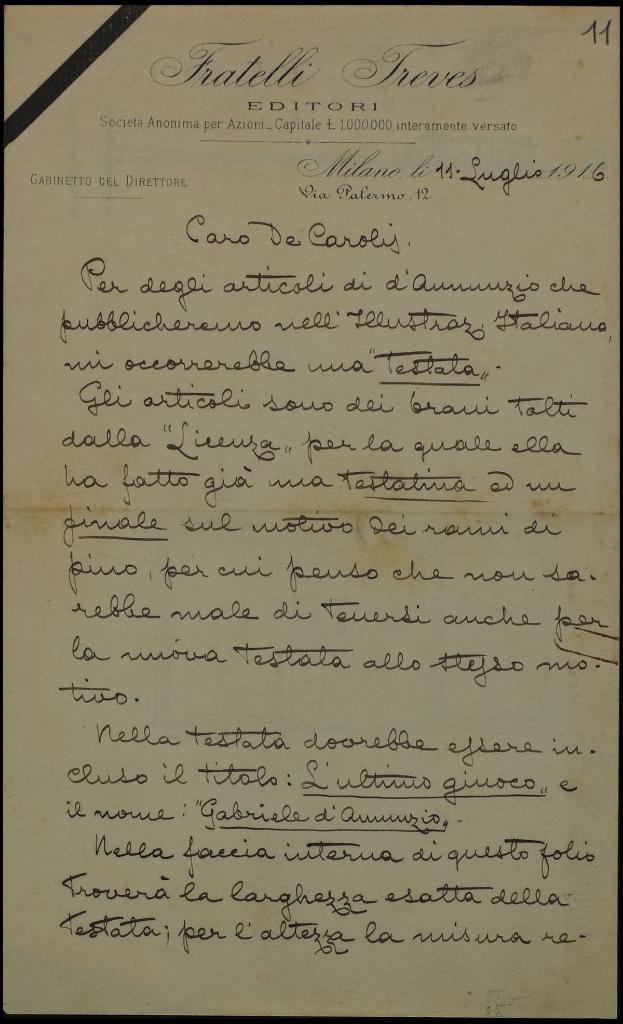 11
Fratelli Treves
EDITORI
Società Anonima per Azioni_Capitale Ł 1,000,000 interamente versato
GABINETTO DEL DIRETTORE
Milano, li 11. Luglio 1916
Via Palermo, 12
Caro De Carolis,
Per degli articoli di d'Annunzio che
pubblicheremo nell'Illustraz. Italiana,
mi occorrerebbe una "testata".
Gli articoli sono dei brani tolti
dalla "Licenza" per la quale ella
ha fatto già una testatina ed un
finale sul motivo dei rami di
pino, per cui penso che non sa-
rebbe male di tenersi anche per
la nuova testata allo stesso mo-
tivo.
Nella testata dovrebbe essere in-
cluso il titolo: L'ultimo giuoco" e
il nome: "Gabriele d'Annunzio".
Nella faccia interna di questo folio
troverà la larghezza esatta della
testata; per l'altezza la misura re-